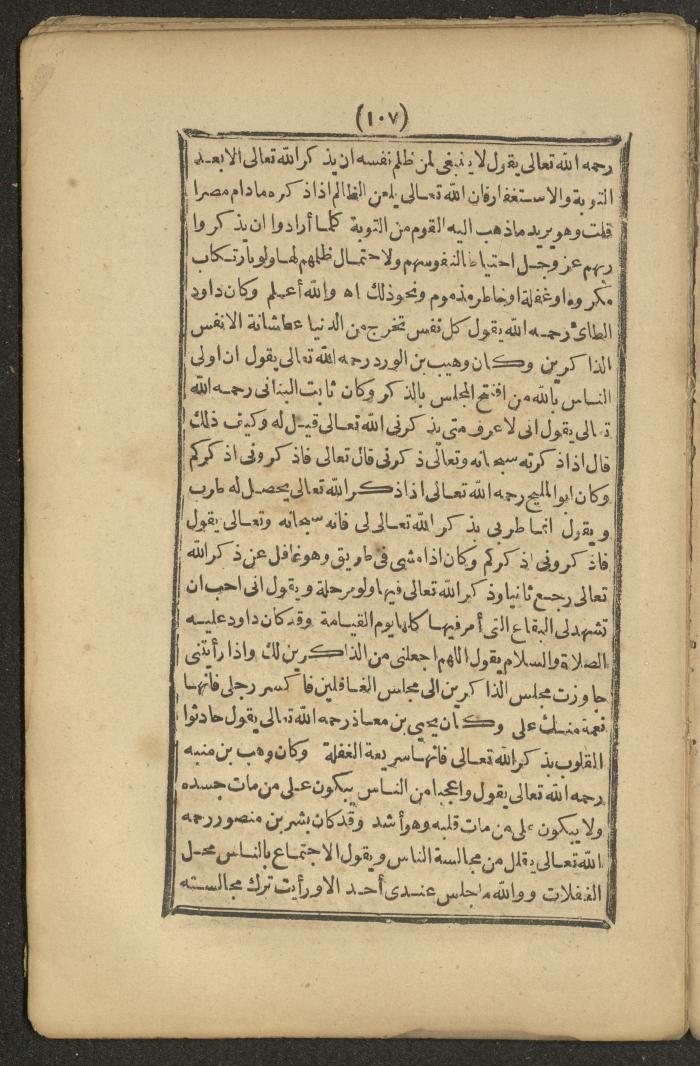 (١٠٧)
رحمه الله تعالى يقول لا ينبغى لمن ظلم نفسه ان يذكر الله تعالى الا بعد
التوبة والاستغفار فان الله تعالى يلعن الظالم اذا ذكره مادام مصرا
قلت وهو يريد ماذهب اليه القوم من التوبة كلما أرادوا ان يذكروا
ربهم عز وجل احتياطا لنفوسهم ولاحتمال ظلمهم لها ولو بارتكاب
مكروه او غفلة او خاطر مذموم ونحو ذلك اه والله أعلم وكان داود
الطائى رحمه الله يقول كل نفس تخرج من الدنيا عطشانة الا نفس
الذاكرين وكان وهيب بن الورد رحمه الله تعالى يقول ان اولى
الناس بالله من افتتح المجلس بالذكر وكان ثابت البنانى رحمه الله
تعالى يقول انى لاعرف متى يذكرنى الله تعالى قيل له وكيف ذلك
قال اذا ذكرته سبحانه وتعالى ذكرنى قال تعالى فاذكرونى اذكركم
وكان ابو المليح رحمه الله تعالى اذا ذكر الله تعالى يحصل له طرب
ويقول انما طربى بذكر الله تعالى لى فانه سبحانه وتعالى يقول
فاذكرونى اذكركم وكان اذا مشى فى طريق وهو غافل عن ذكر الله
تعالى رجع ثانيا وذكر الله تعالى فيها ولو مرحلة ويقول انى احب ان
تشهد لى البقاع التى أمر فيها كلها يوم القيامة وقد كان داود عليه
الصلاة والسلام يقول اللهم اجعلنى من الذاكرين لك واذا رأيتنى
جاوزت مجلس الذاكرين الى مجلس الغافلين فاكسر رجلى فانها
نعمة منك على وكان يحيى بن معاذ رحمه الله تعالى يقول حادثوا
القلوب بذكر الله تعالى فانها سريعة الغفلة وكان وهب بن منبه
رحمه الله تعالى يقول واعجبا من الناس يبكون على من مات جسده
ولا يبكون على من مات قلبه وهو أشد وقد كان بشر بن منصور رحمه
الله تعالى يقلل من مجالسة الناس ويقول الاجتماع بالناس محل
الغفلات ووالله ماجلس عندى أحد الا ورأيت ترك مجالسته